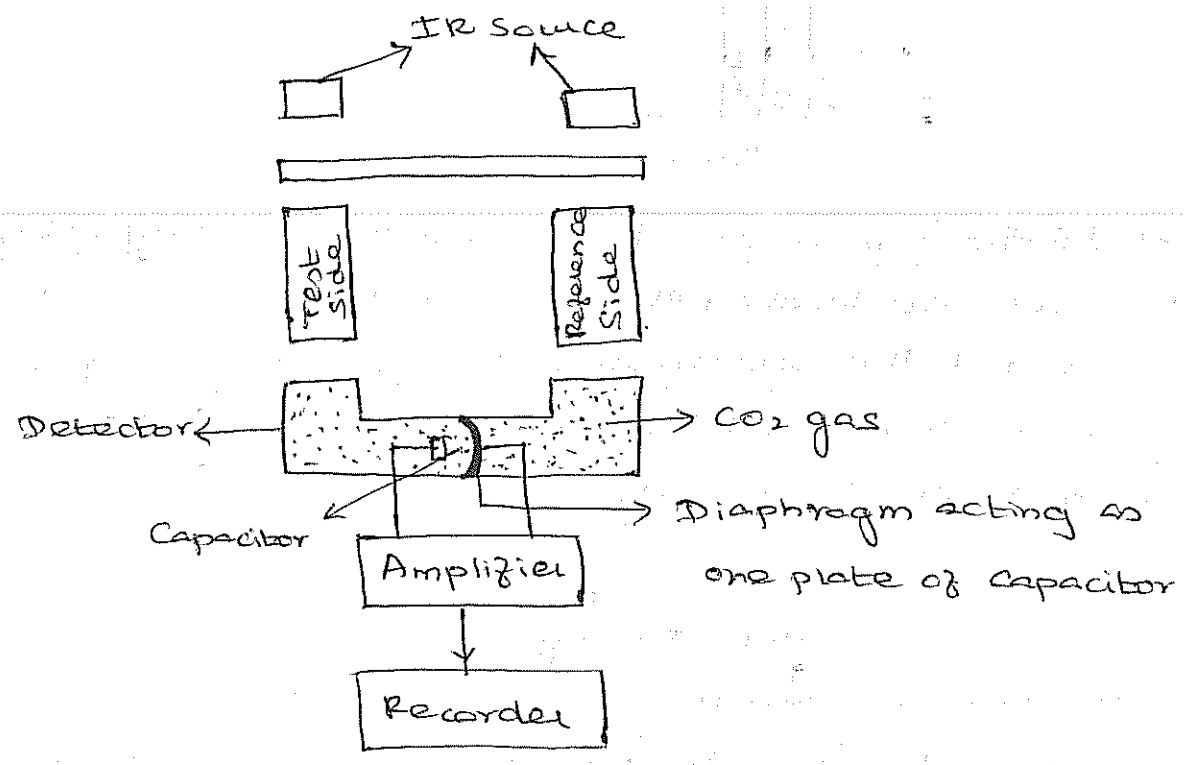 IR Source
Test
Side
Reference
Side
Detector
CO2 gas
Capacitor
Diaphragm acting as
one plate of capacitor
Amplifier
Recorder